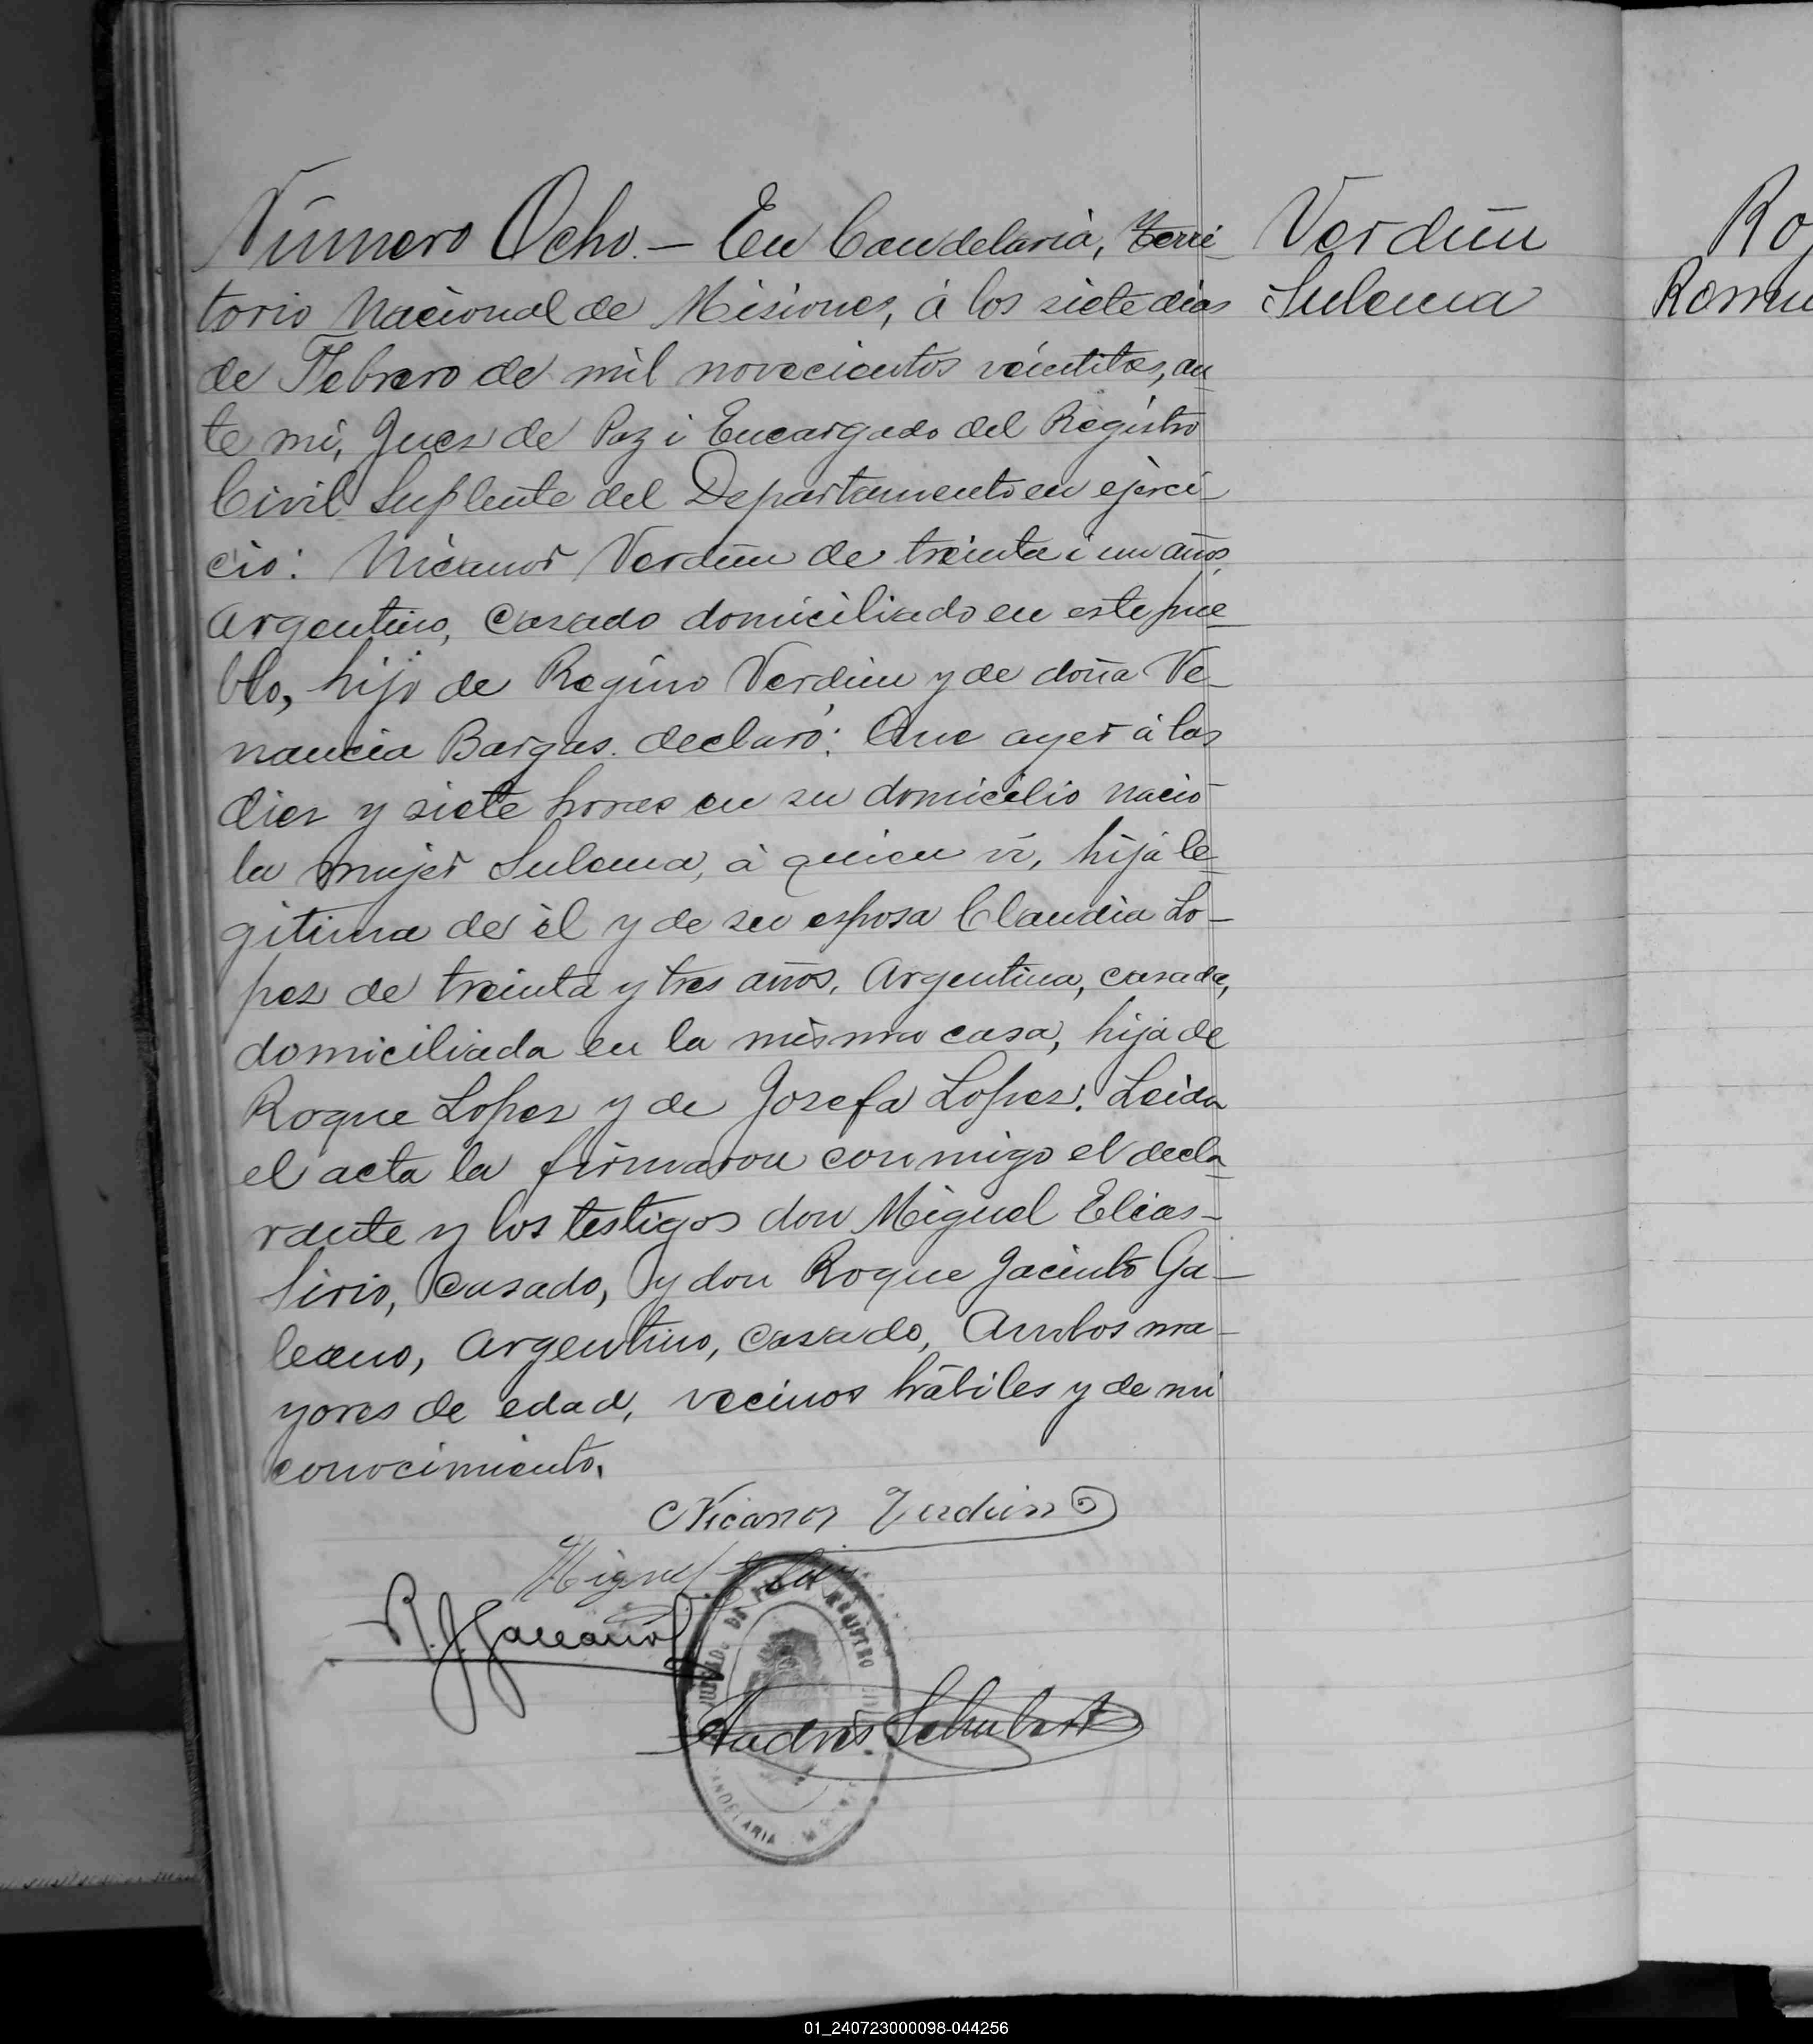 Número Ocho. — En Candelaria, terri-
torio Nacional de Misiones, á los siete dias
de Febrero de mil novecientos veintitres, an
te mi, Juez de Paz i Encargado del Registro
Civil Suplente del Departamento en ejerci-
cio: Nicanor Verdún de treinta i un años,
Argentino, casado domiciliado en este pue-
blo, hijo de Regino Verdún y de doña Ve-
nancia Bargas. declaró: Que ayer á las
diez y siete horas en su domicilio nació
la mujer Sulema, á quien ví, hija le-
gitima de él y de su esposa Claudia Lo-
pez de treinta y tres años, Argentina, casada,
domiciliada en la misma casa, hija de
Roque Lopez y de Josefa Lopez. Leida
el acta la firmaron conmigo el decla-
rante y los testigos don Miguel Elias-
Sirio, casado, y don Roque Jacinto Ga-
leano, Argentino, casado, Ambos ma-
yores de edad, vecinos hábiles y de mi
conocimiento.
Verdún
Sulema
Ro
Romu
Nicanor Verdun
Miguel
R. J. Galeano
DE PAZ REGISTRO
Andrés Schubert
CANDELARIA
01_240723000098-044256